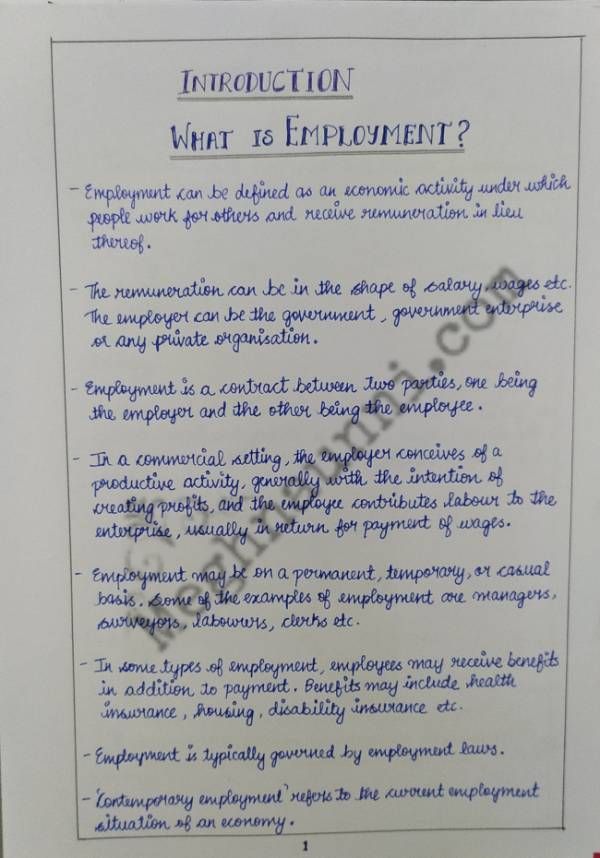 INTRODUCTION
WHAT IS EMPLOYMENT?
- Employment can be defined as an economic activity under which
people work for others and receive remuneration in lieu
thereof.
- The remuneration can be in the shape of salary, wages etc.
The employer can be the government, government enterprise
or any private organisation.
- Employment is a contract between two parties, one being
the employer and the other being the employee.
- In a commercial setting, the employer conceives of a
productive activity, generally with the intention of
creating profits, and the employee contributes labour to the
enterprise, usually in return for payment of wages.
- Employment may be on a permanent, temporary, or casual
basis. Some of the examples of employment are managers,
surveyors, labourers, clerks etc.
- In some types of employment, employees may receive benefits
in addition to payment. Benefits may include health
insurance, housing, disability insurance etc.
- Employment is typically governed by employment laws.
- 'Contemporary employment' refers to the current employment
situation of an economy.
1